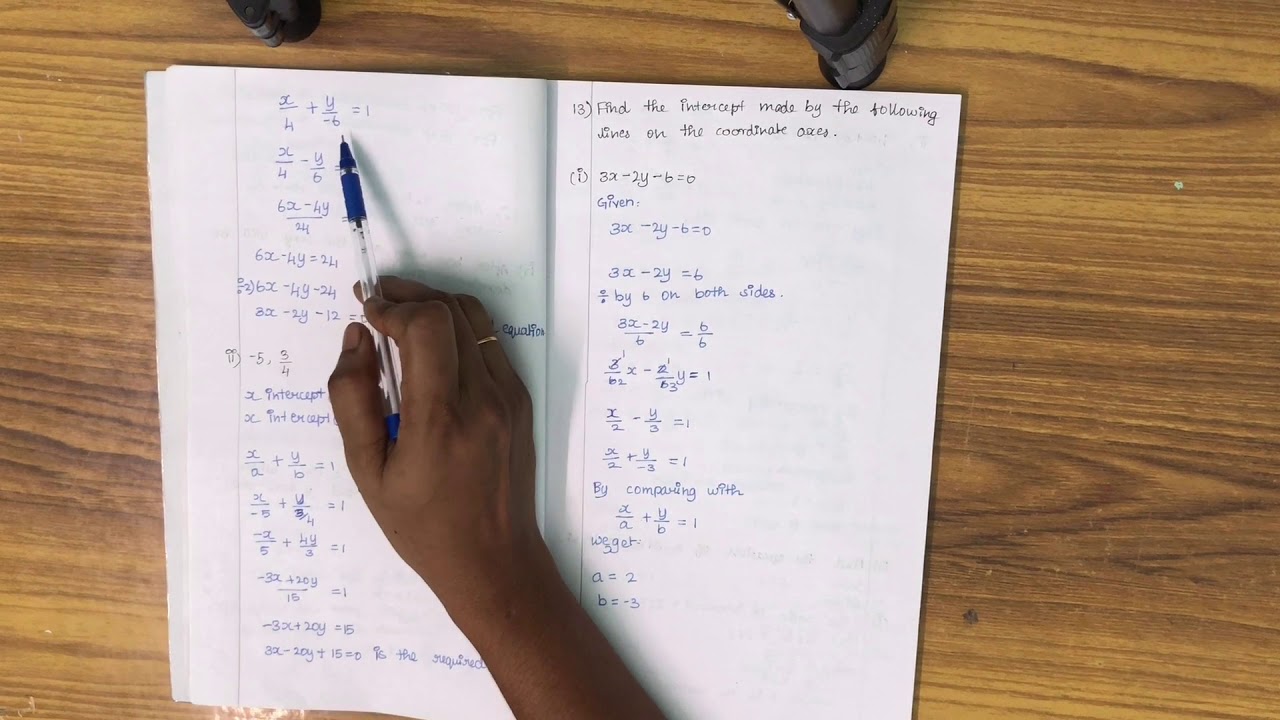 x/4 + y/-6 = 1
x/4 - y/6 =
6x-4y/24 =
6x-4y=24
÷2) 6x-4y-24
3x-2y-12 =0
equation
ii) -5, 3/4
x intercept
x intercept
x/a + y/b = 1
x/-5 + y/3/4 = 1
-x/5 + 4y/3 = 1
-3x+20y/15 = 1
-3x+20y =15
3x-20y+15=0 is the required
13) Find the intercept made by the following
lines on the coordinate axes.
(i) 3x-2y-6=0
Given:
3x-2y-6=0
3x-2y =6
÷ by 6 on both sides.
3x-2y/6 = 6/6
3/6 x - 2/6 y = 1
x/2 - y/3 =1
x/2 + y/-3 =1
By comparing with
x/a + y/b = 1
we get:
a = 2
b = -3